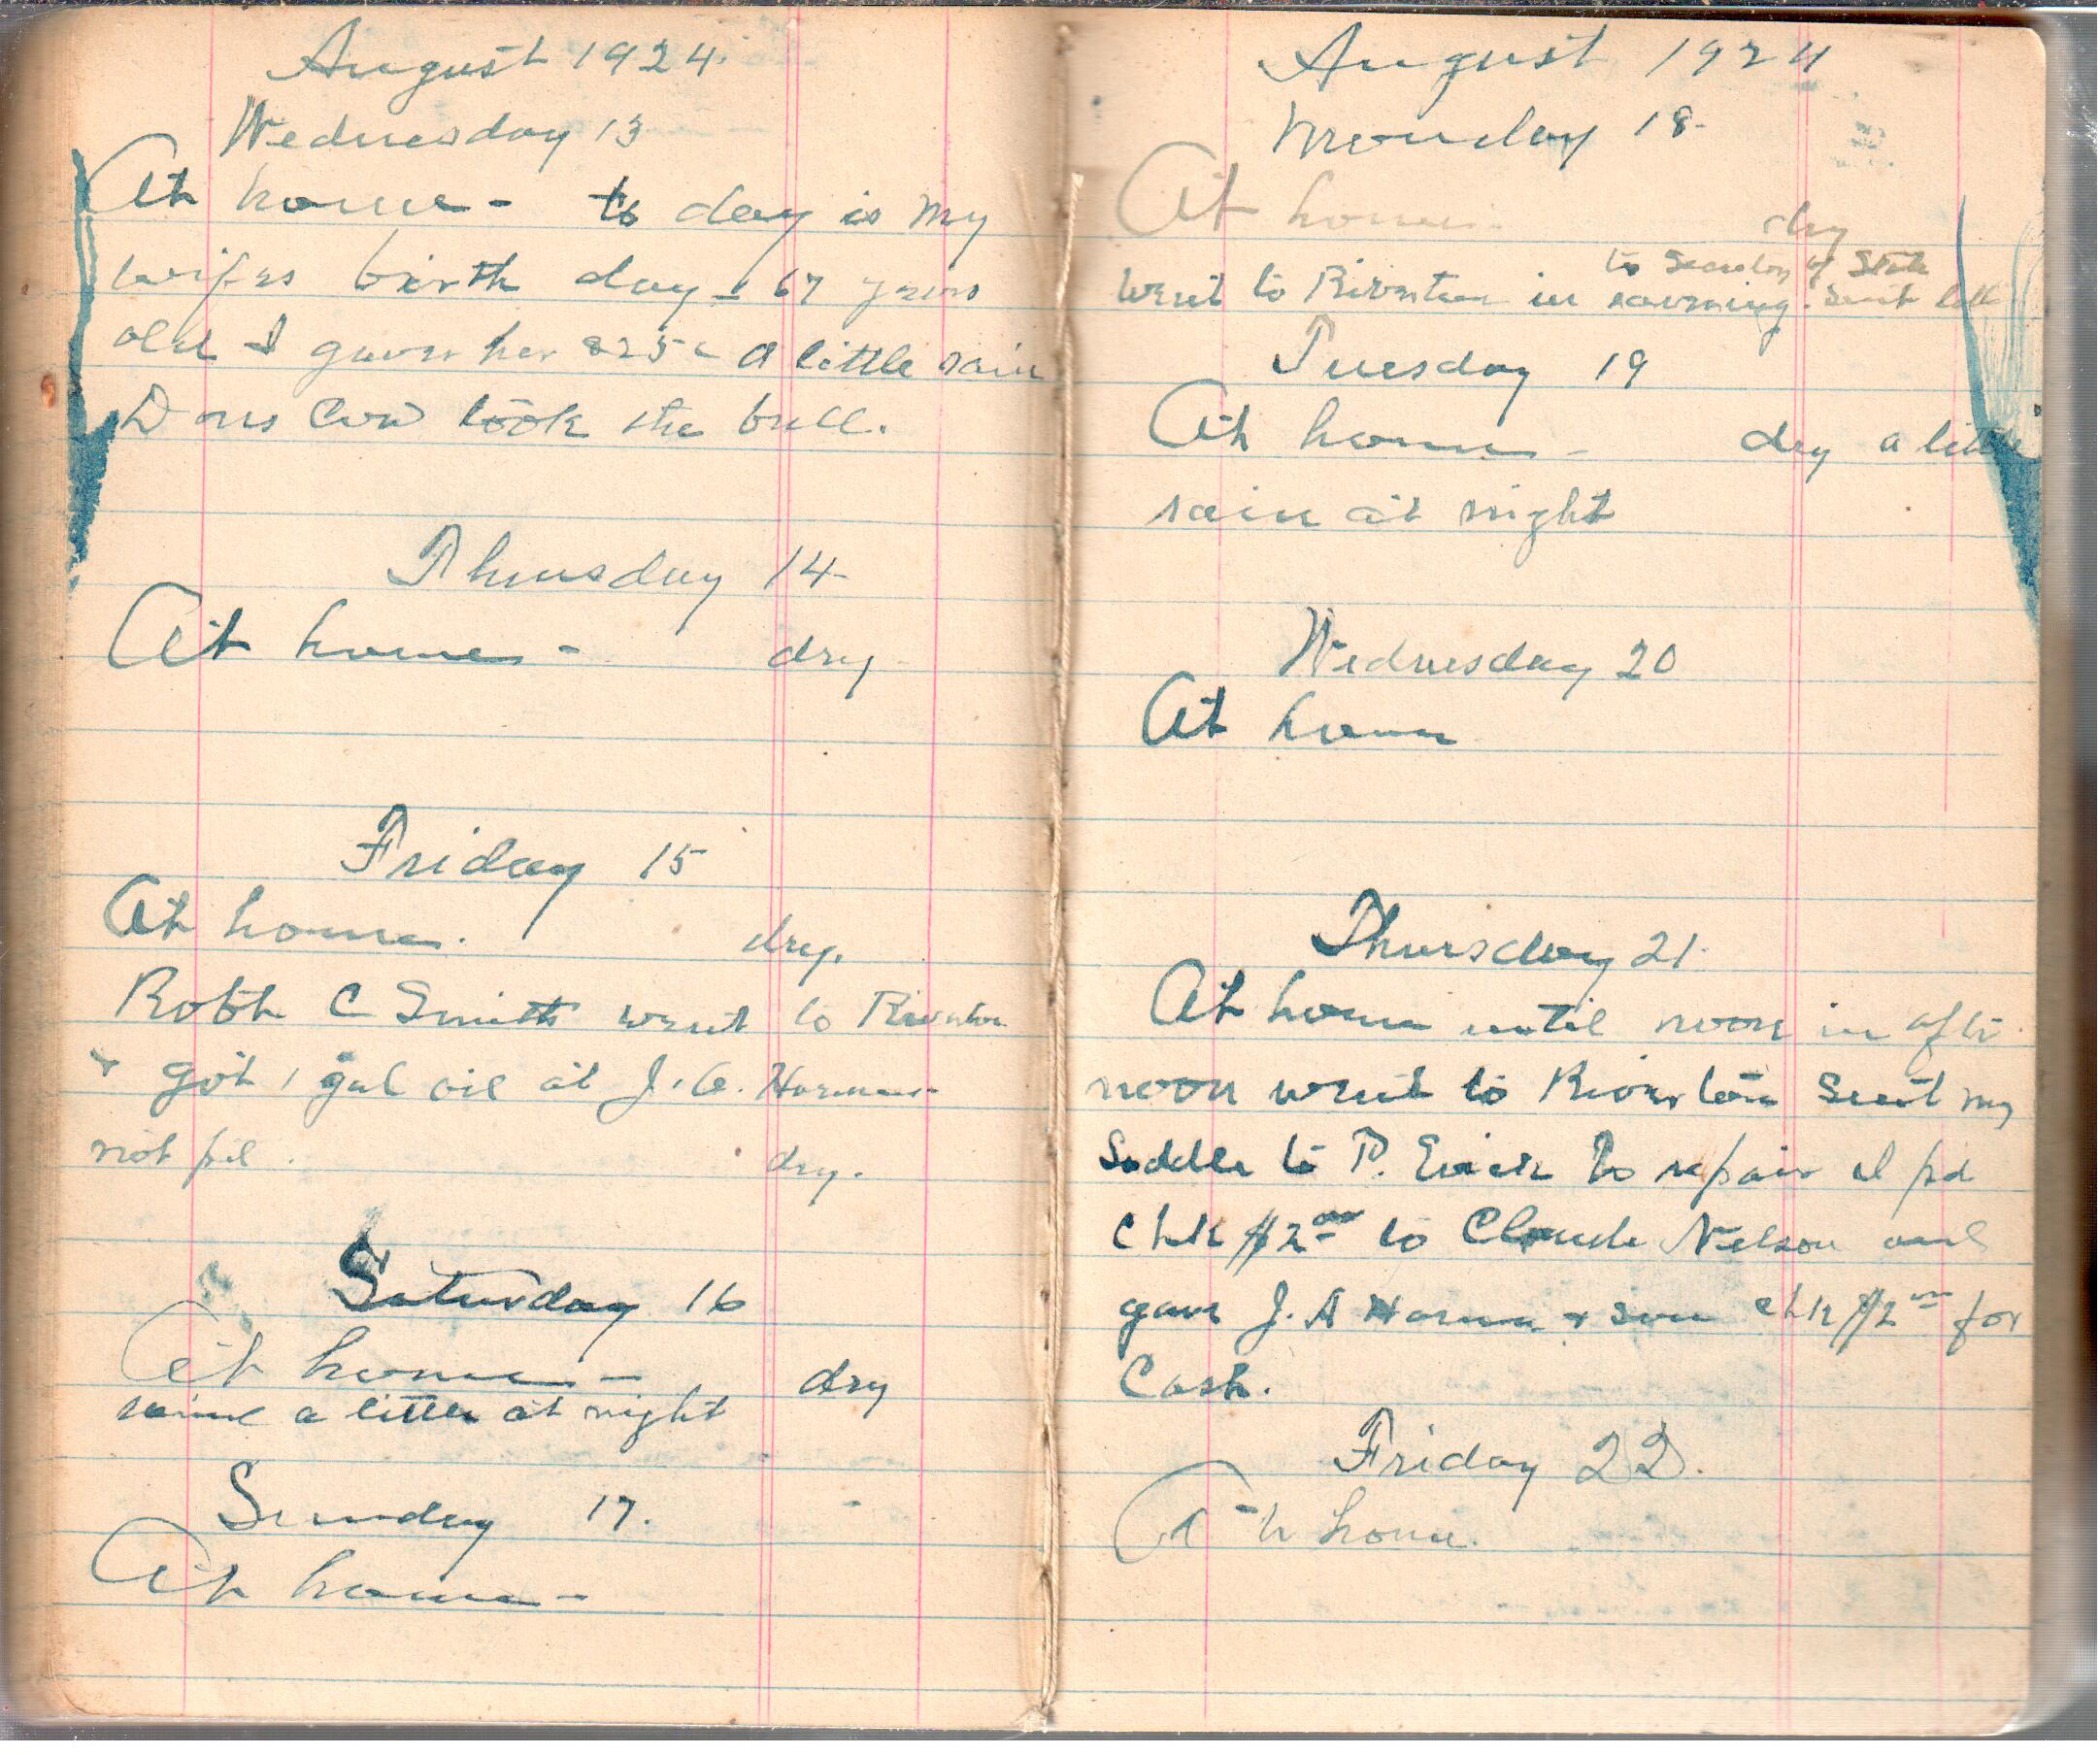 August 1924.
Wednesday 13
At home - to day is my
wifes birth day - 67 years
old I gave her 25c A little rain
Dons Cow took the bull.
Thursday 14
At home - dry
Friday 15
At home. dry.
Robt C Smith went to Riverton
& got 1 gal oil at J. A. Hornes
not pd. dry.
Saturday 16
At home - dry
rained a little at night
Sunday 17.
At home -
August 1924
Monday 18
At home. dry
to Secretary of State
Went to Riverton in morning. Sent
Tuesday 19
At home - dry a little
rain at night
Wednesday 20
At home
Thursday 21.
At home until noon in after
noon went to Riverton Sent my
Saddle to P. to repair I pd
Chk $2 00 to Claude Nelson and
gave J. A Horne & son chk $2 00 for
Cash.
Friday 22.
At home.